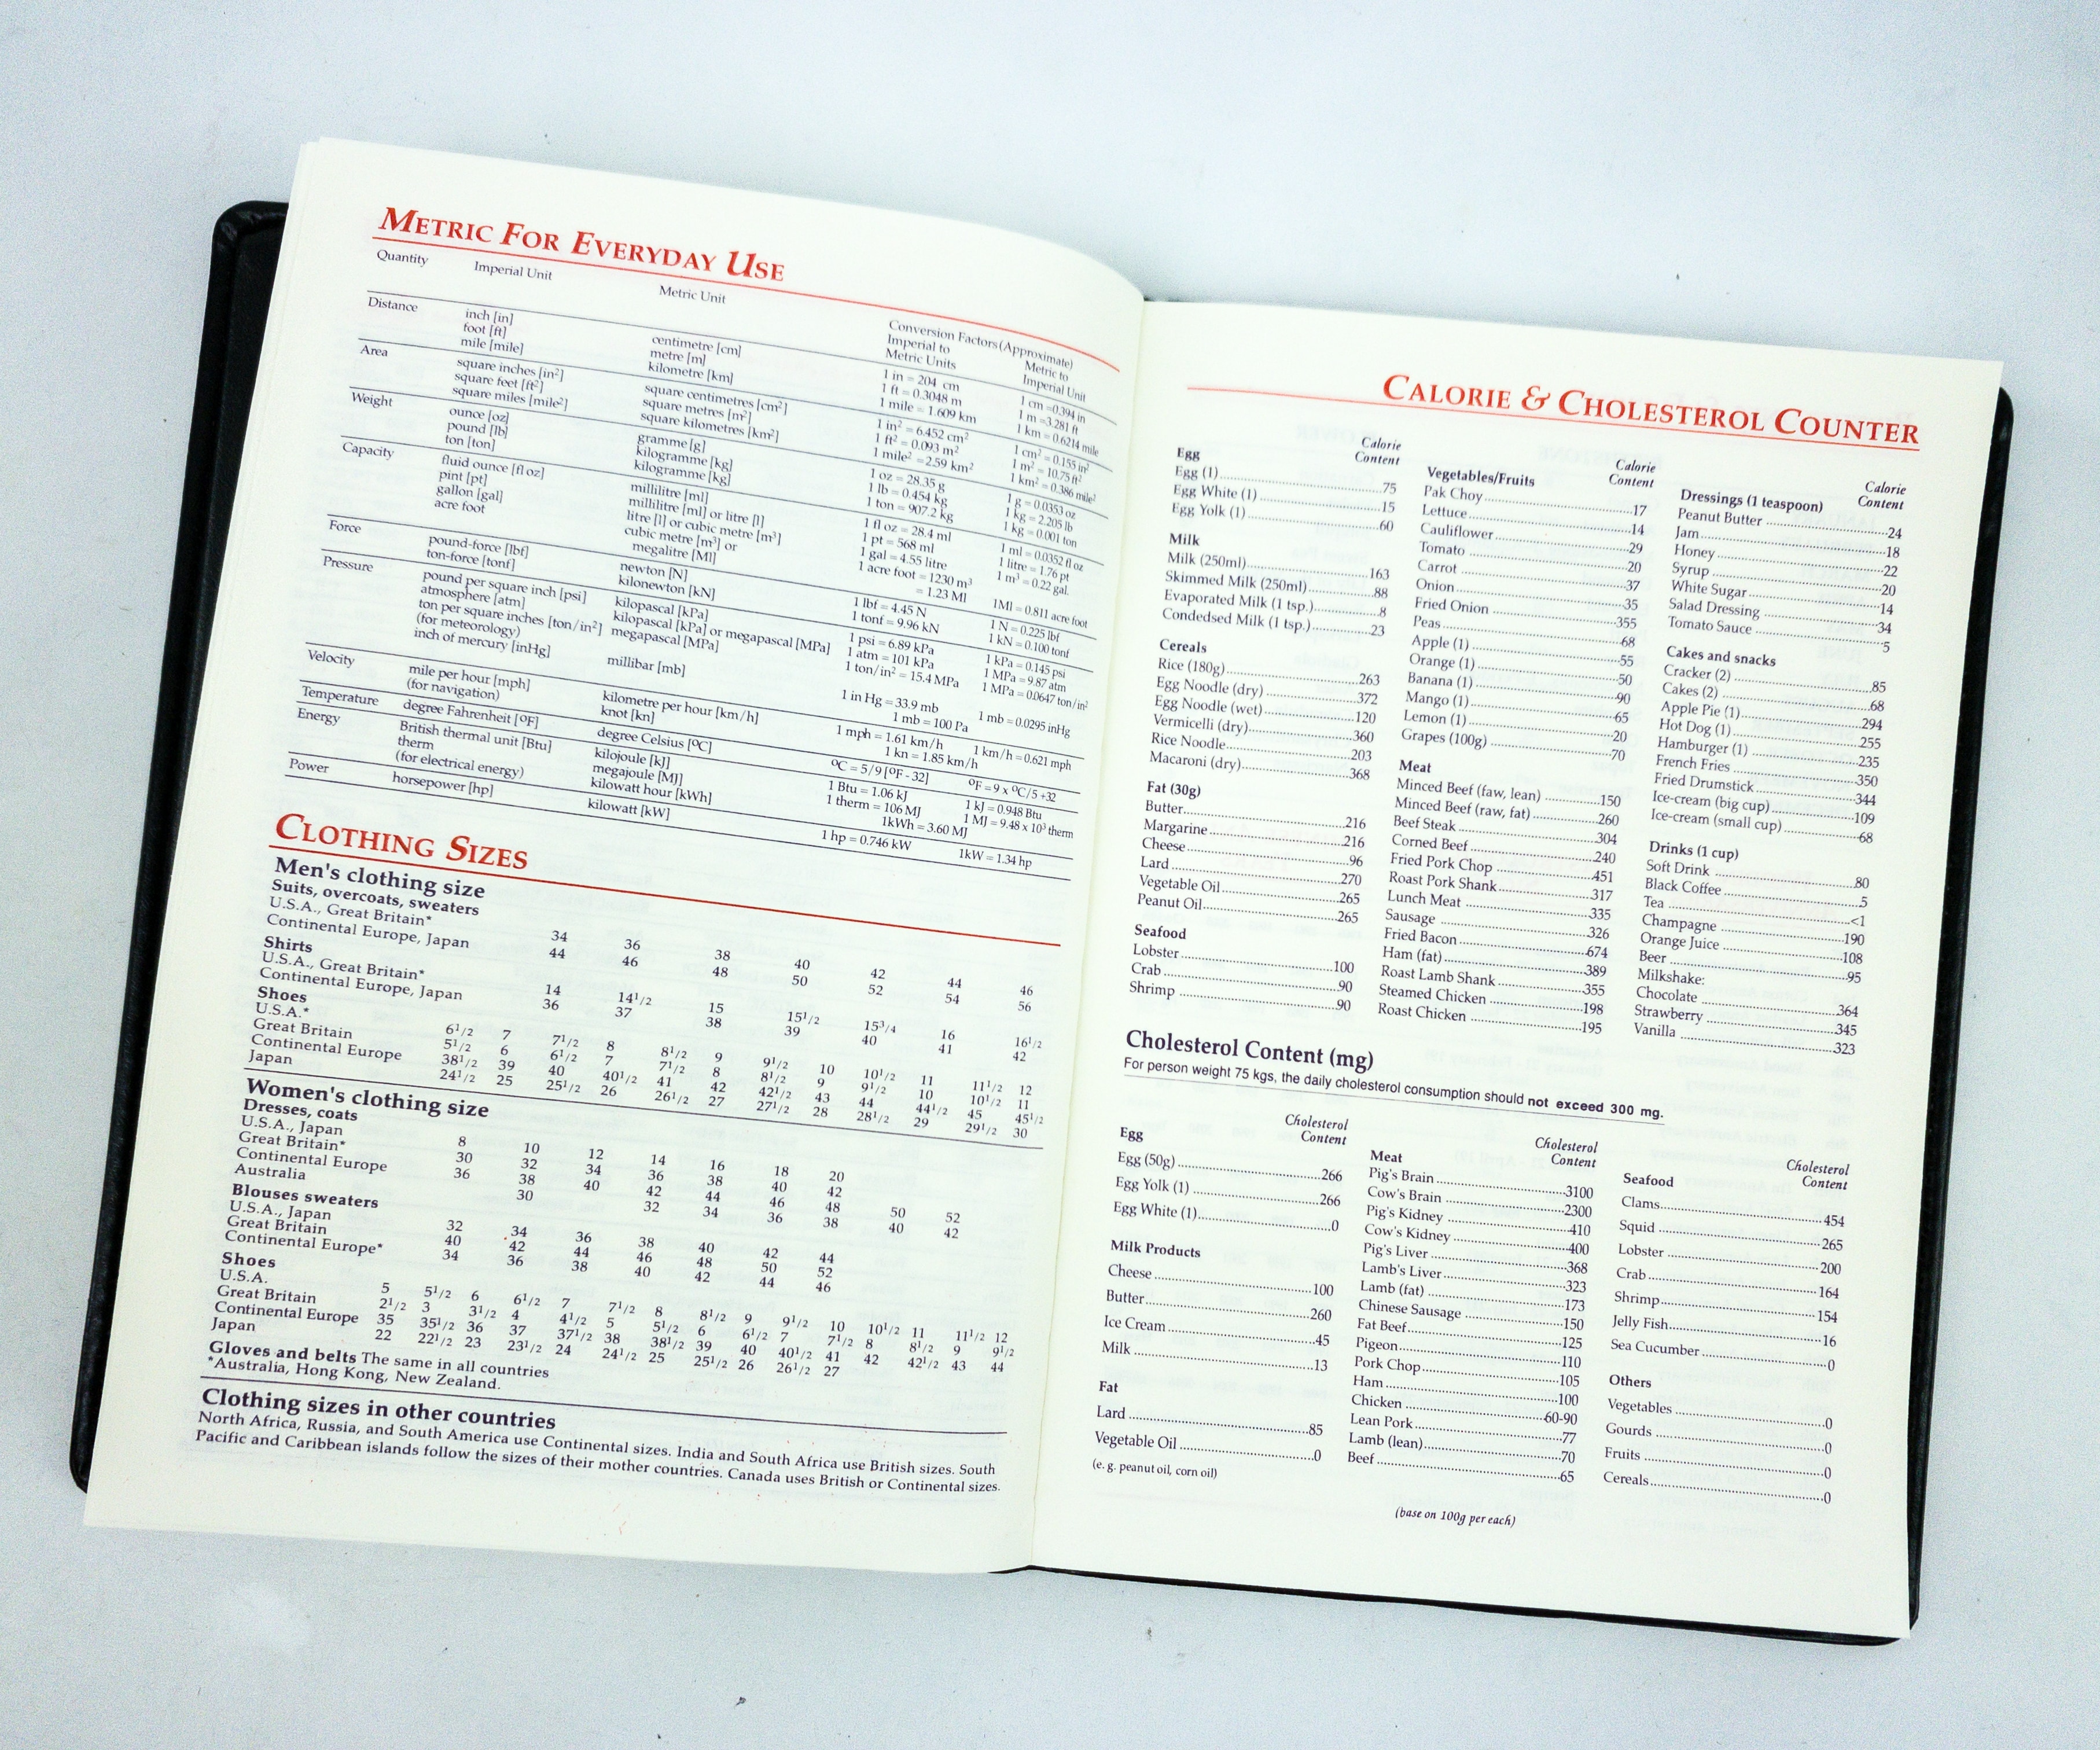 METRIC FOR EVERYDAY USE
Quantity Imperial Unit Metric Unit Conversion Factors (Approximate)
Imperial to Metric Units Metric to Imperial Unit
Distance inch [in] centimetre [cm] 1 in = 204 cm 1 cm =0.394 in
foot [ft] metre [m] 1 ft = 0.3048 m 1 m =3.281 ft
mile [mile] kilometre [km] 1 mile = 1.609 km 1 km = 0.6214 mile
Area square inches [in²] square centimetres [cm²] 1 in² = 6.452 cm² 1 cm² = 0.155 in²
square feet [ft²] square metres [m²] 1 ft² = 0.093 m² 1 m² = 10.75 ft²
square miles [mile²] square kilometres [km²] 1 mile² =2.59 km² 1 km² = 0.386 mile²
Weight ounce [oz] gramme [g] 1 oz = 28.35 g 1 g = 0.0353 oz
pound [lb] kilogramme [kg] 1 lb = 0.454 kg 1 kg = 2.205 lb
ton [ton] kilogramme [kg] 1 ton = 907.2 kg 1 kg = 0.001 ton
Capacity fluid ounce [fl oz] millilitre [ml] 1 fl oz = 28.4 ml 1 ml = 0.0352 fl oz
pint [pt] millilitre [ml] or litre [l] 1 pt = 568 ml 1 litre = 1.76 pt
gallon [gal] litre [l] or cubic metre [m³] 1 gal = 4.55 litre 1 m³ = 0.22 gal.
acre foot cubic metre [m³] or 1 acre foot = 1230 m³
megalitre [Ml] = 1.23 Ml 1Ml = 0.811 acre foot
Force pound-force [lbf] newton [N] 1 lbf = 4.45 N 1 N = 0.225 lbf
ton-force [tonf] kilonewton [kN] 1 tonf = 9.96 kN 1 kN = 0.100 tonf
Pressure pound per square inch [psi] kilopascal [kPa] 1 psi = 6.89 kPa 1 kPa = 0.145 psi
atmosphere [atm] kilopascal [kPa] or megapascal [MPa] 1 atm = 101 kPa 1 MPa = 9.87 atm
ton per square inches [ton/in²] megapascal [MPa] 1 ton/in² = 15.4 MPa 1 MPa = 0.0647 ton/in²
(for meteorology)
inch of mercury [inHg] millibar [mb] 1 in Hg = 33.9 mb 1 mb = 0.0295 inHg
1 mb = 100 Pa
Velocity mile per hour [mph] kilometre per hour [km/h] 1 mph = 1.61 km/h 1 km/h = 0.621 mph
(for navigation) knot [kn] 1 kn = 1.85 km/h
Temperature degree Fahrenheit [ºF] degree Celsius [ºC] ºC = 5/9 [ºF - 32] ºF = 9 x ºC/5 +32
Energy British thermal unit [Btu] kilojoule [kJ] 1 Btu = 1.06 kJ 1 kJ = 0.948 Btu
therm megajoule [MJ] 1 therm = 106 MJ 1 MJ = 9.48 x 10³ therm
(for electrical energy) kilowatt hour [kWh] 1kWh = 3.60 MJ
Power horsepower [hp] kilowatt [kW] 1 hp = 0.746 kW 1kW = 1.34 hp
CLOTHING SIZES
Men's clothing size
Suits, overcoats, sweaters
U.S.A., Great Britain* 34 36 38 40 42 44 46
Continental Europe, Japan 44 46 48 50 52 54 56
Shirts
U.S.A., Great Britain* 14 14 1/2 15 15 1/2 15 3/4 16 16 1/2
Continental Europe, Japan 36 37 38 39 40 41 42
Shoes
U.S.A.* 6 1/2 7 7 1/2 8 8 1/2 9 9 1/2 10 10 1/2 11 11 1/2 12
Great Britain 5 1/2 6 6 1/2 7 7 1/2 8 8 1/2 9 9 1/2 10 10 1/2 11
Continental Europe 38 1/2 39 40 40 1/2 41 42 42 1/2 43 44 44 1/2 45 45 1/2
Japan 24 1/2 25 25 1/2 26 26 1/2 27 27 1/2 28 28 1/2 29 29 1/2 30
Women's clothing size
Dresses, coats
U.S.A., Japan 8 10 12 14 16 18 20
Great Britain* 30 32 34 36 38 40 42
Continental Europe 36 38 40 42 44 46 48 50 52
Australia 30 32 34 36 38 40 42
Blouses sweaters
U.S.A., Japan 32 34 36 38 40 42 44
Great Britain 40 42 44 46 48 50 52
Continental Europe* 34 36 38 40 42 44 46
Shoes
U.S.A. 5 5 1/2 6 6 1/2 7 7 1/2 8 8 1/2 9 9 1/2 10 10 1/2 11 11 1/2 12
Great Britain 2 1/2 3 3 1/2 4 4 1/2 5 5 1/2 6 6 1/2 7 7 1/2 8 8 1/2 9 9 1/2
Continental Europe 35 35 1/2 36 37 37 1/2 38 38 1/2 39 40 40 1/2 41 42 42 1/2 43 44
Japan 22 22 1/2 23 23 1/2 24 24 1/2 25 25 1/2 26 26 1/2 27
Gloves and belts The same in all countries
*Australia, Hong Kong, New Zealand.
Clothing sizes in other countries
North Africa, Russia, and South America use Continental sizes. India and South Africa use British sizes. South
Pacific and Caribbean islands follow the sizes of their mother countries. Canada uses British or Continental sizes.
CALORIE & CHOLESTEROL COUNTER
Egg Calorie Content
Egg (1) 75
Egg White (1) 15
Egg Yolk (1) 60
Milk
Milk (250ml) 163
Skimmed Milk (250ml) 88
Evaporated Milk (1 tsp.) 8
Condedsed Milk (1 tsp.) 23
Cereals
Rice (180g) 263
Egg Noodle (dry) 372
Egg Noodle (wet) 120
Vermicelli (dry) 360
Rice Noodle 203
Macaroni (dry) 368
Fat (30g)
Butter 216
Margarine 216
Cheese 96
Lard 270
Vegetable Oil 265
Peanut Oil 265
Seafood
Lobster 100
Crab 90
Shrimp 90
Vegetables/Fruits Calorie Content
Pak Choy 17
Lettuce 14
Cauliflower 29
Tomato 20
Carrot 37
Onion 35
Fried Onion 355
Peas 68
Apple (1) 55
Orange (1) 50
Banana (1) 90
Mango (1) 65
Lemon (1) 20
Grapes (100g) 70
Meat
Minced Beef (faw, lean) 150
Minced Beef (raw, fat) 260
Beef Steak 304
Corned Beef 240
Fried Pork Chop 451
Roast Pork Shank 317
Lunch Meat 335
Sausage 326
Fried Bacon 674
Ham (fat) 389
Roast Lamb Shank 355
Steamed Chicken 198
Roast Chicken 195
Dressings (1 teaspoon) Calorie Content
Peanut Butter 24
Jam 18
Honey 22
Syrup 20
White Sugar 14
Salad Dressing 34
Tomato Sauce 5
Cakes and snacks
Cracker (2) 85
Cakes (2) 68
Apple Pie (1) 294
Hot Dog (1) 255
Hamburger (1) 235
French Fries 350
Fried Drumstick 344
Ice-cream (big cup) 109
Ice-cream (small cup) 68
Drinks (1 cup)
Soft Drink 80
Black Coffee 5
Tea <1
Champagne 190
Orange Juice 108
Beer 95
Milkshake:
Chocolate 364
Strawberry 345
Vanilla 323
Cholesterol Content (mg)
For person weight 75 kgs, the daily cholesterol consumption should not exceed 300 mg.
Egg Cholesterol Content
Egg (50g) 266
Egg Yolk (1) 266
Egg White (1) 0
Milk Products
Cheese 100
Butter 260
Ice Cream 45
Milk 13
Fat
Lard 85
Vegetable Oil 0
(e. g. peanut oil, corn oil)
Meat Cholesterol Content
Pig's Brain 3100
Cow's Brain 2300
Pig's Kidney 410
Cow's Kidney 400
Pig's Liver 368
Lamb's Liver 323
Lamb (fat) 173
Chinese Sausage 150
Fat Beef 125
Pigeon 110
Pork Chop 105
Ham 100
Chicken 60-90
Lean Pork 77
Lamb (lean) 70
Beef 65
Seafood Cholesterol Content
Clams 454
Squid 265
Lobster 200
Crab 164
Shrimp 154
Jelly Fish 16
Sea Cucumber 0
Others
Vegetables 0
Gourds 0
Fruits 0
Cereals 0
(base on 100g per each)